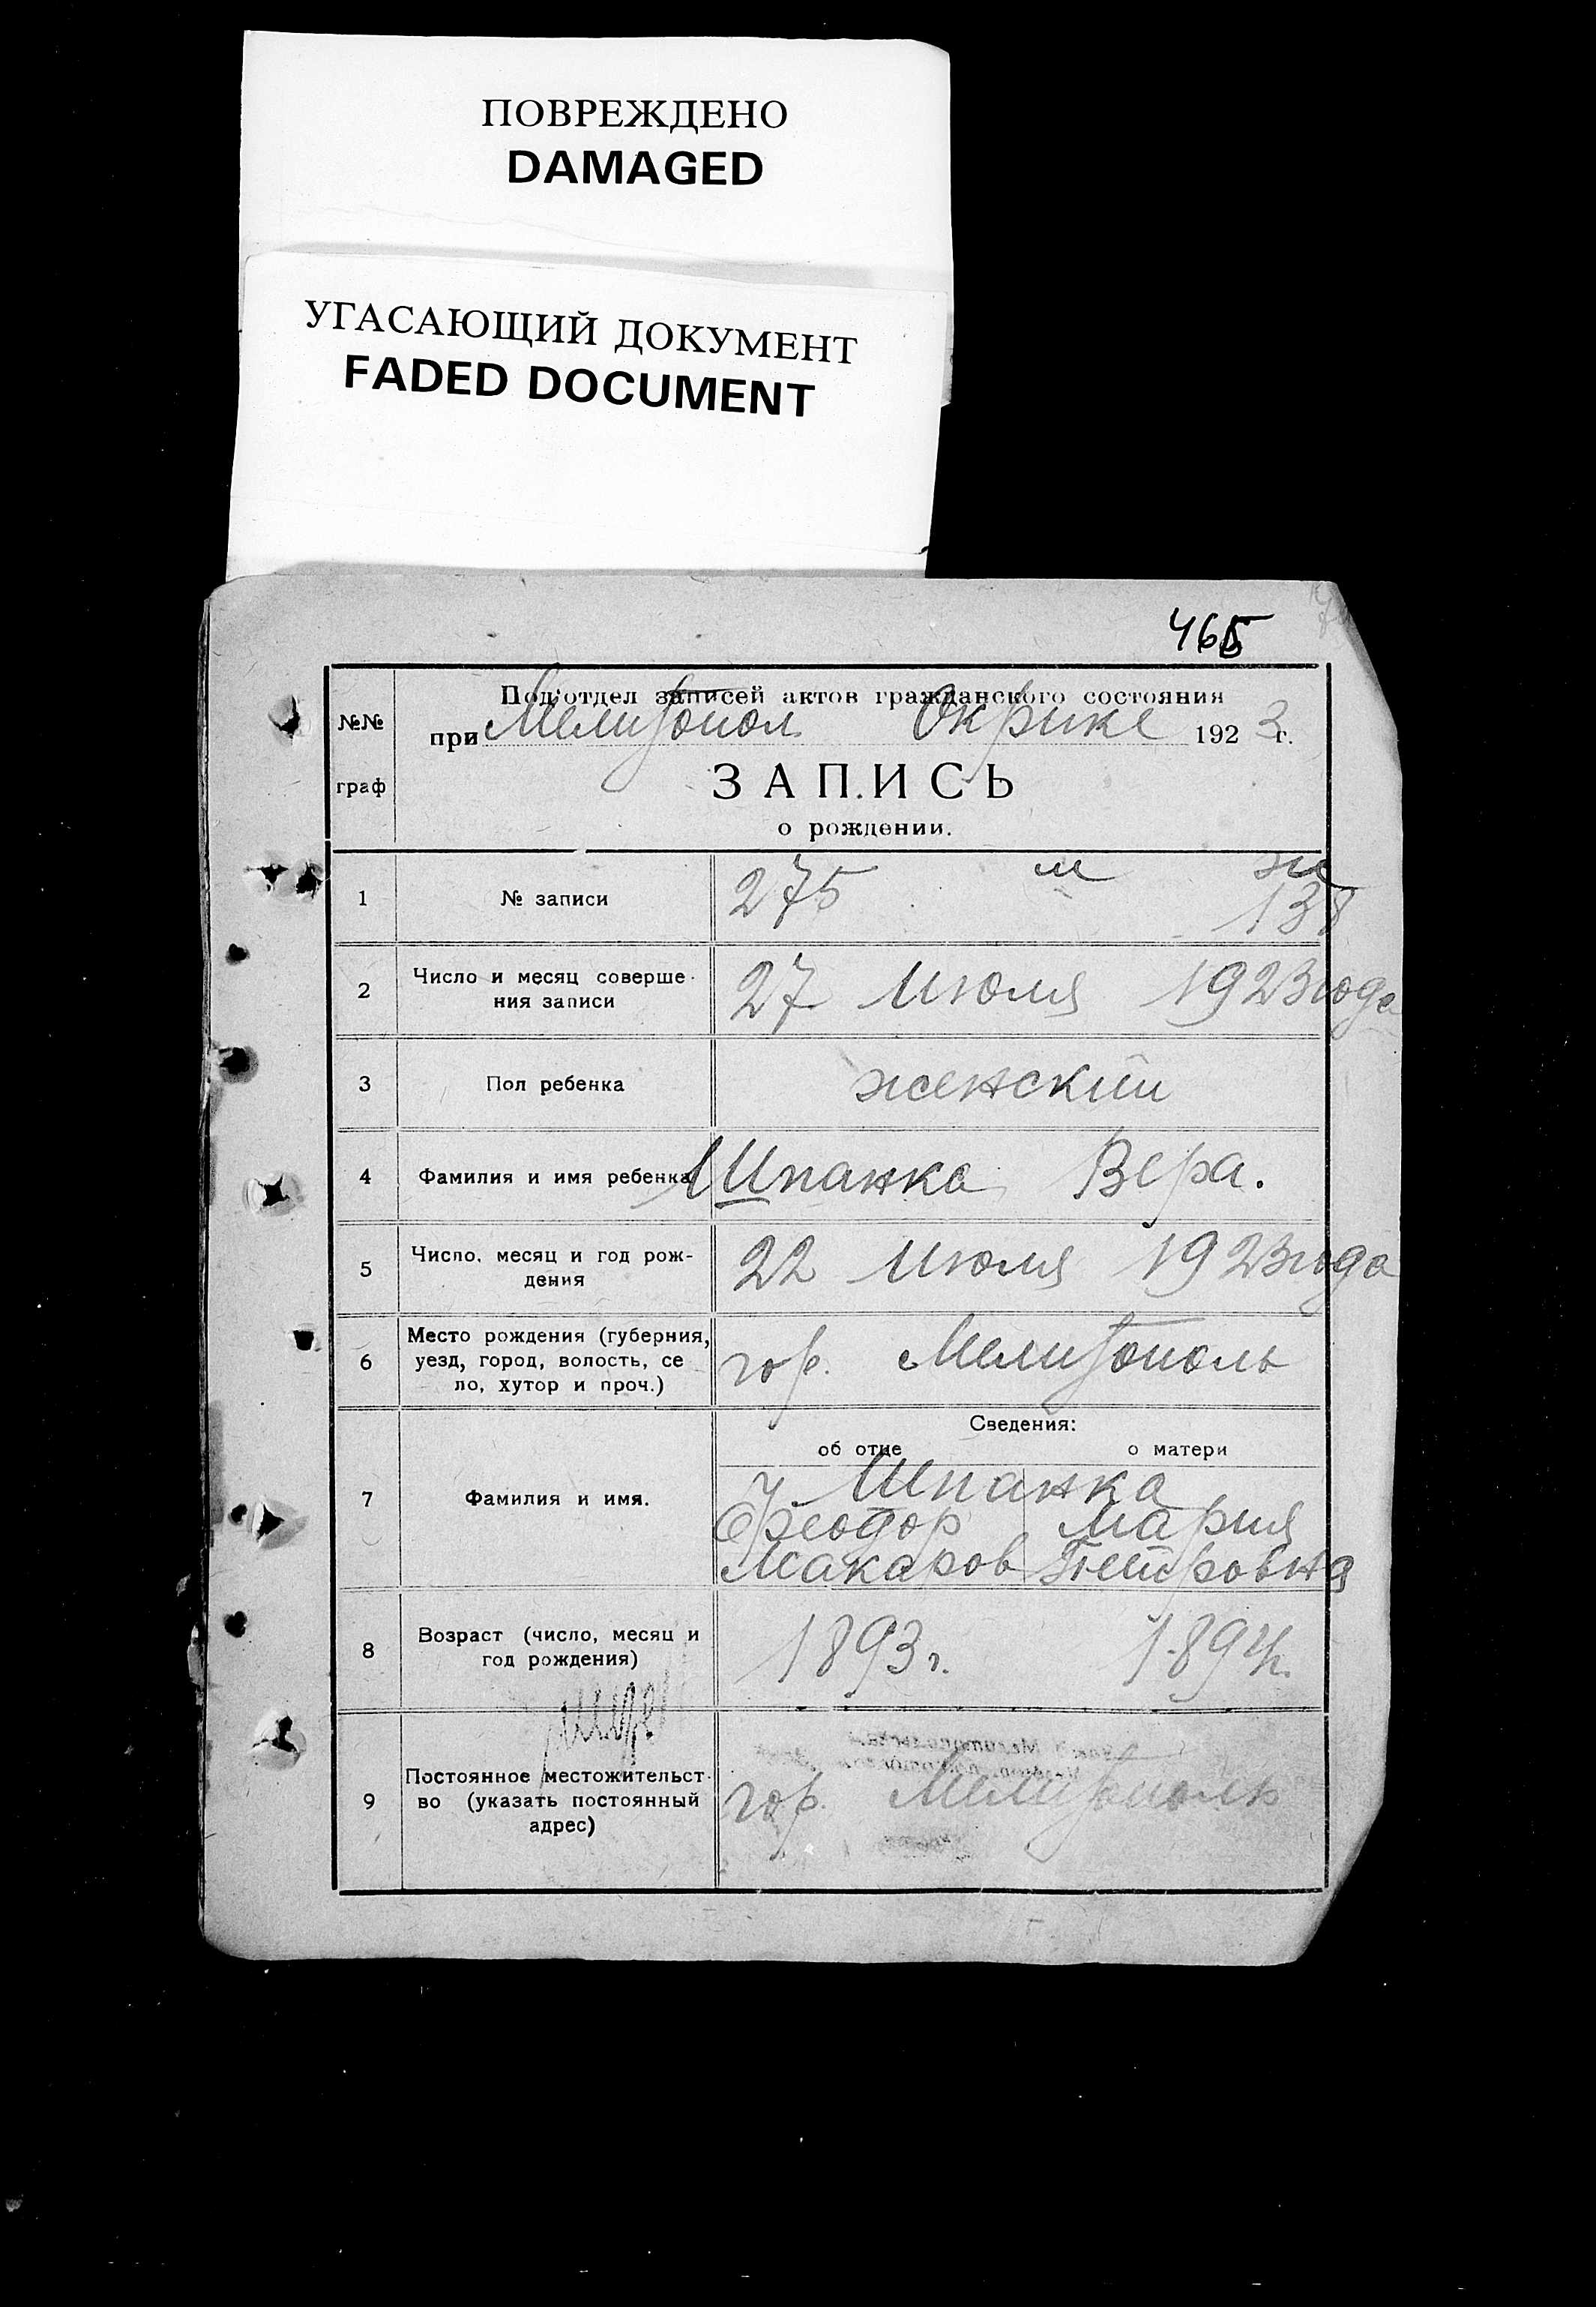 ПОВРЕЖДЕНО
DAMAGED
УГАСАЮЩИЙ ДОКУМЕНТ
FADED DOCUMENT
465
№№ граф
Под'отдел записей актов гражданского состояния
при Мелитопол Окрике 1923 г.
ЗАПИСЬ
о рождении.
1 № записи 275 м ж 138
2 Число и месяц соверше-
ния записи 27 Июля 1923 года
3 Пол ребенка женский
4 Фамилия и имя ребенка Шпанка Вера.
5 Число, месяц и год рож-
дения 22 Июля 1923 года
6 Место рождения (губерния,
уезд, город, волость, се
ло, хутор и проч.) гор. Мелитополь
Сведения:
об отце о матери
7 Фамилия и имя. Шпанка
Феодор Мария
Макаров Петровна
8 Возраст (число, месяц и
год рождения) 1893 г. 1894 г.
9 Постоянное местожительст-
во (указать постоянный
адрес) гор. Мелитополь